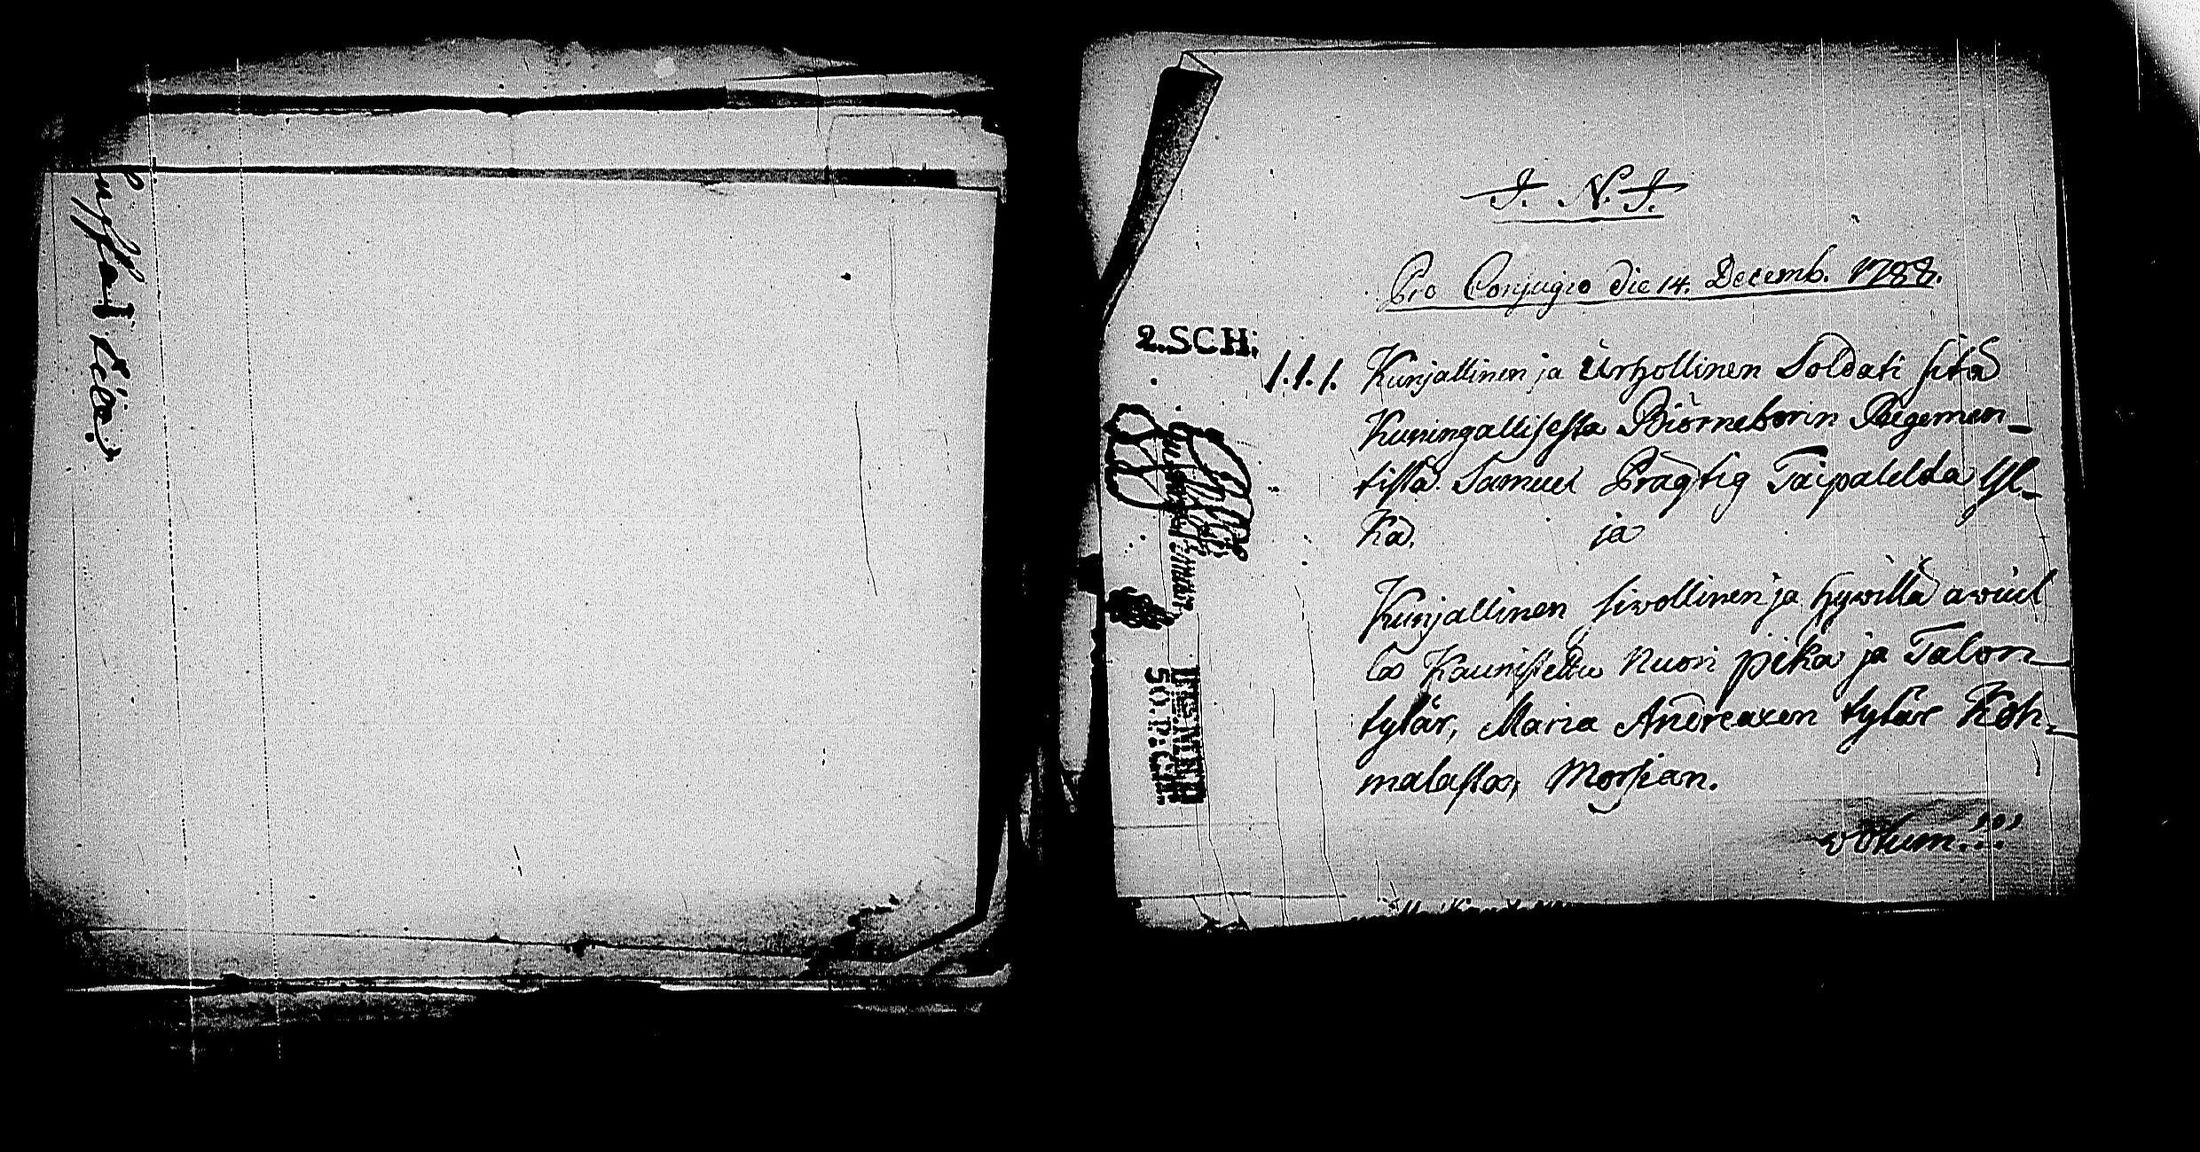 J. N. J.
Pro Conjugio die 14. Decemb. 1788.
2.SCH;
1.1.1. Kunjallinen ja Urhollinen Soldati sitä
Kuningallisesta Biörneborin Regemen-
tistä Samuel Prägtig Taipalelda Yl-
Kä. ja
Kunjallinen siwollinen ja hywillä awuil
la Kaunistettu Nuori pika ja Talon-
tytär, Maria Andreaxen tytär Koh-
malasta, Morsian.
votum!!!
50.P:CH.